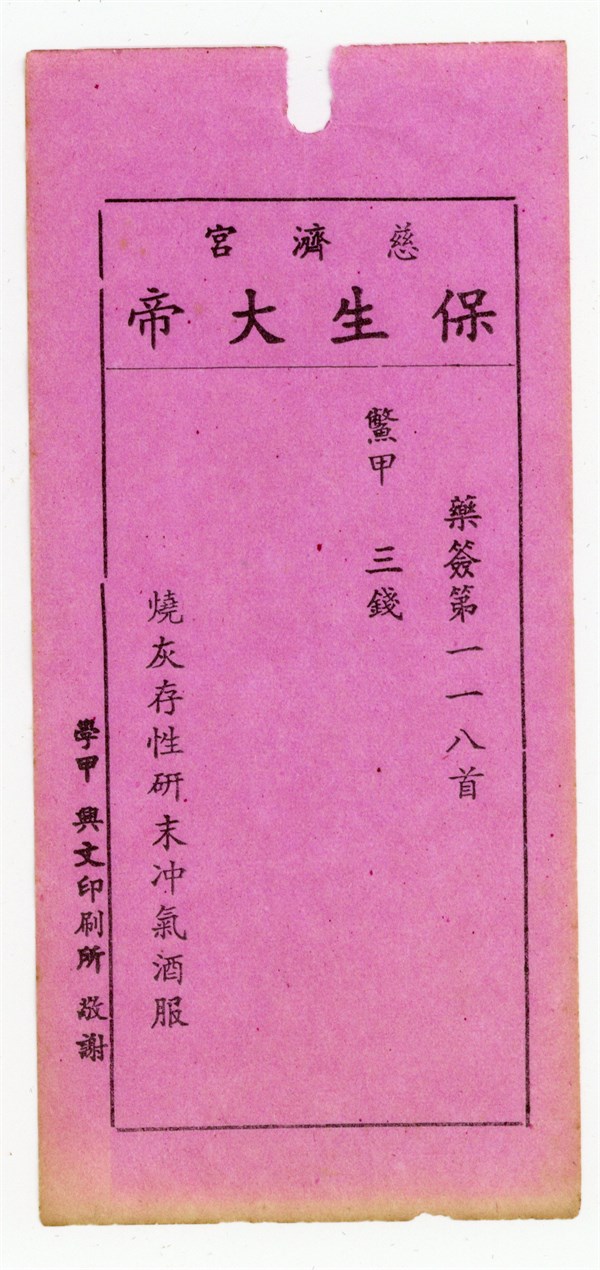 慈濟宮
保生大帝
藥簽第一一八首
鱉甲 三錢
燒灰存性研末冲氣酒服
學甲 興文印刷所 敬謝